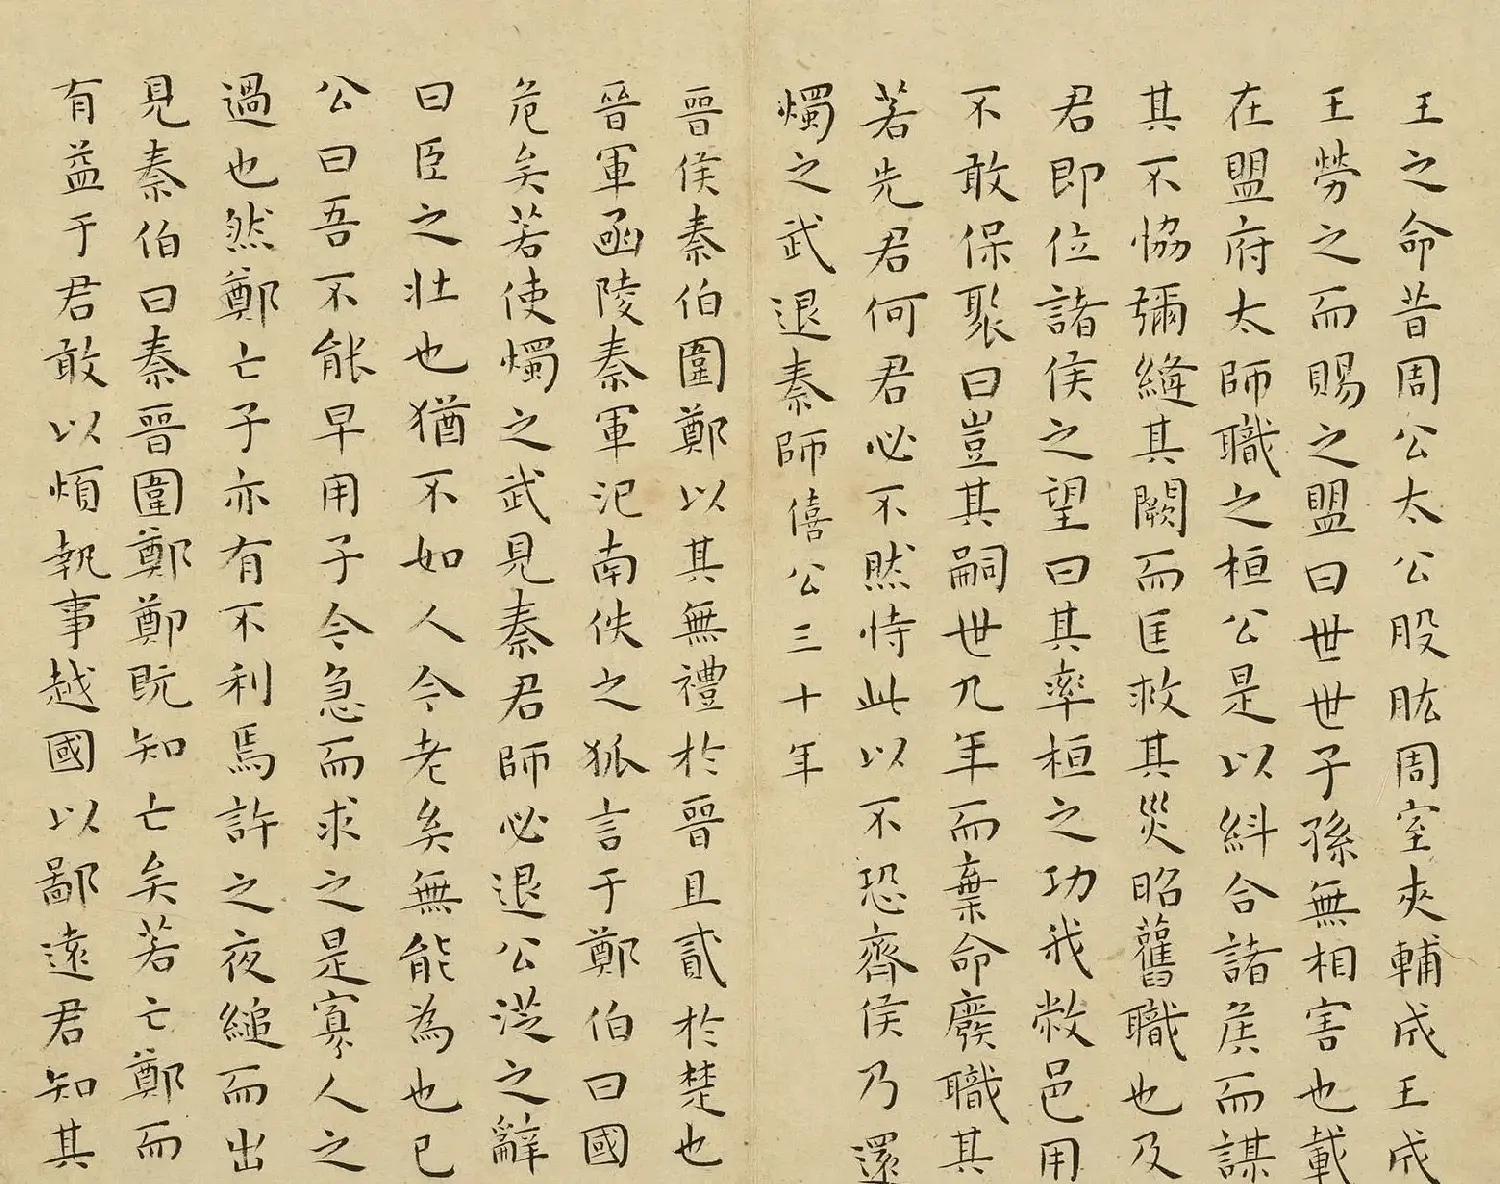 王之命昔周公太公股肱周室夾輔成王成
王勞之而賜之盟曰世世子孫無相害也載
在盟府太師職之桓公是以糾合諸侯而謀
其不協彌縫其闕而匡救其災昭舊職也及
君即位諸侯之望曰其率桓之功我敝邑用
不敢保聚曰豈其嗣世九年而棄命廢職其
若先君何君必不然恃此以不恐齊侯乃還
燭之武退秦師僖公三十年
晉侯秦伯圍鄭以其無禮於晉且貳於楚也
晉軍函陵秦軍氾南佚之狐言于鄭伯曰國
危矣若使燭之武見秦君師必退公從之辭
曰臣之壯也猶不如人今老矣無能為也已
公曰吾不能早用子今急而求之是寡人之
過也然鄭亡子亦有不利焉許之夜縋而出
見秦伯曰秦晉圍鄭鄭既知亡矣若亡鄭而
有益于君敢以煩執事越國以鄙遠君知其